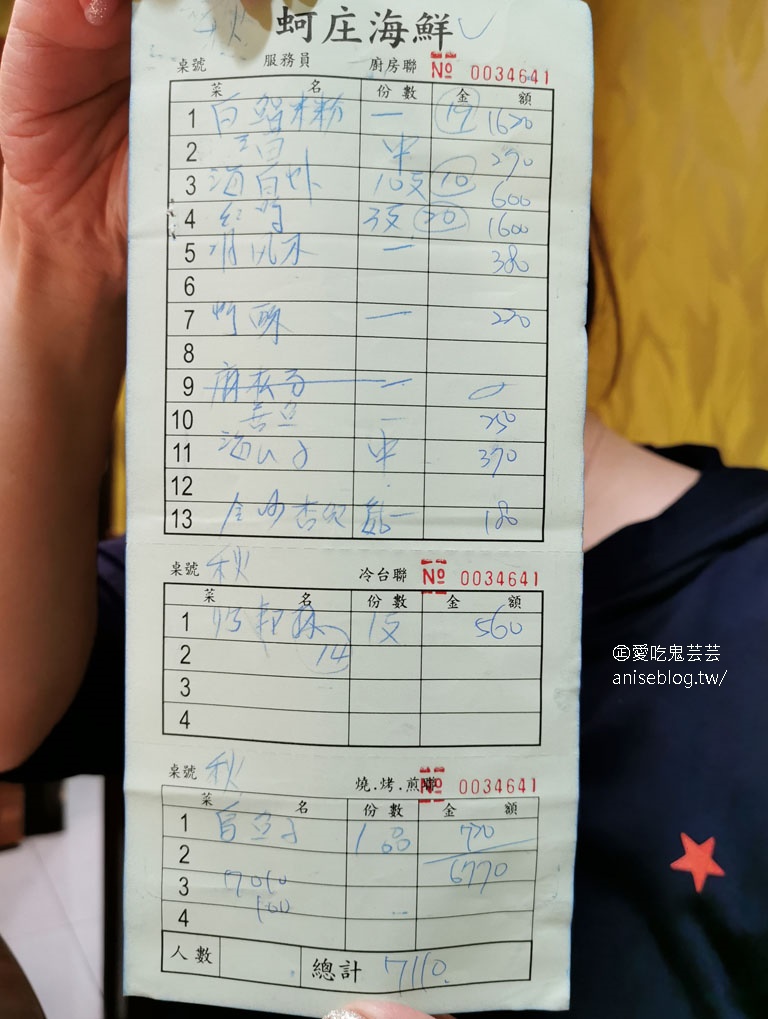 秋 蚵庄海鮮
桌號 服務員 廚房聯 No 0034641
菜名 份數 金額
1 白鯧米粉 一 17 1620
2 中 290
3 海白蝦 10支 10 600
4 3支 20 1600
5 一 380
6
7 蚵酥 一 220
8
9 一 0
10 一 250
11 中 390
12
13 金沙杏鮑菇 一 180
桌號 秋 冷台聯 No 0034641
菜名 份數 金額
1 1支 560
2 14
3
4
桌號 秋 燒.烤.煎聯 No 0034641
菜名 份數 金額
1 1 770
2 6770
3 7010
4 100
人數 總計 7110
㊣愛吃鬼芸芸
aniseblog.tw/